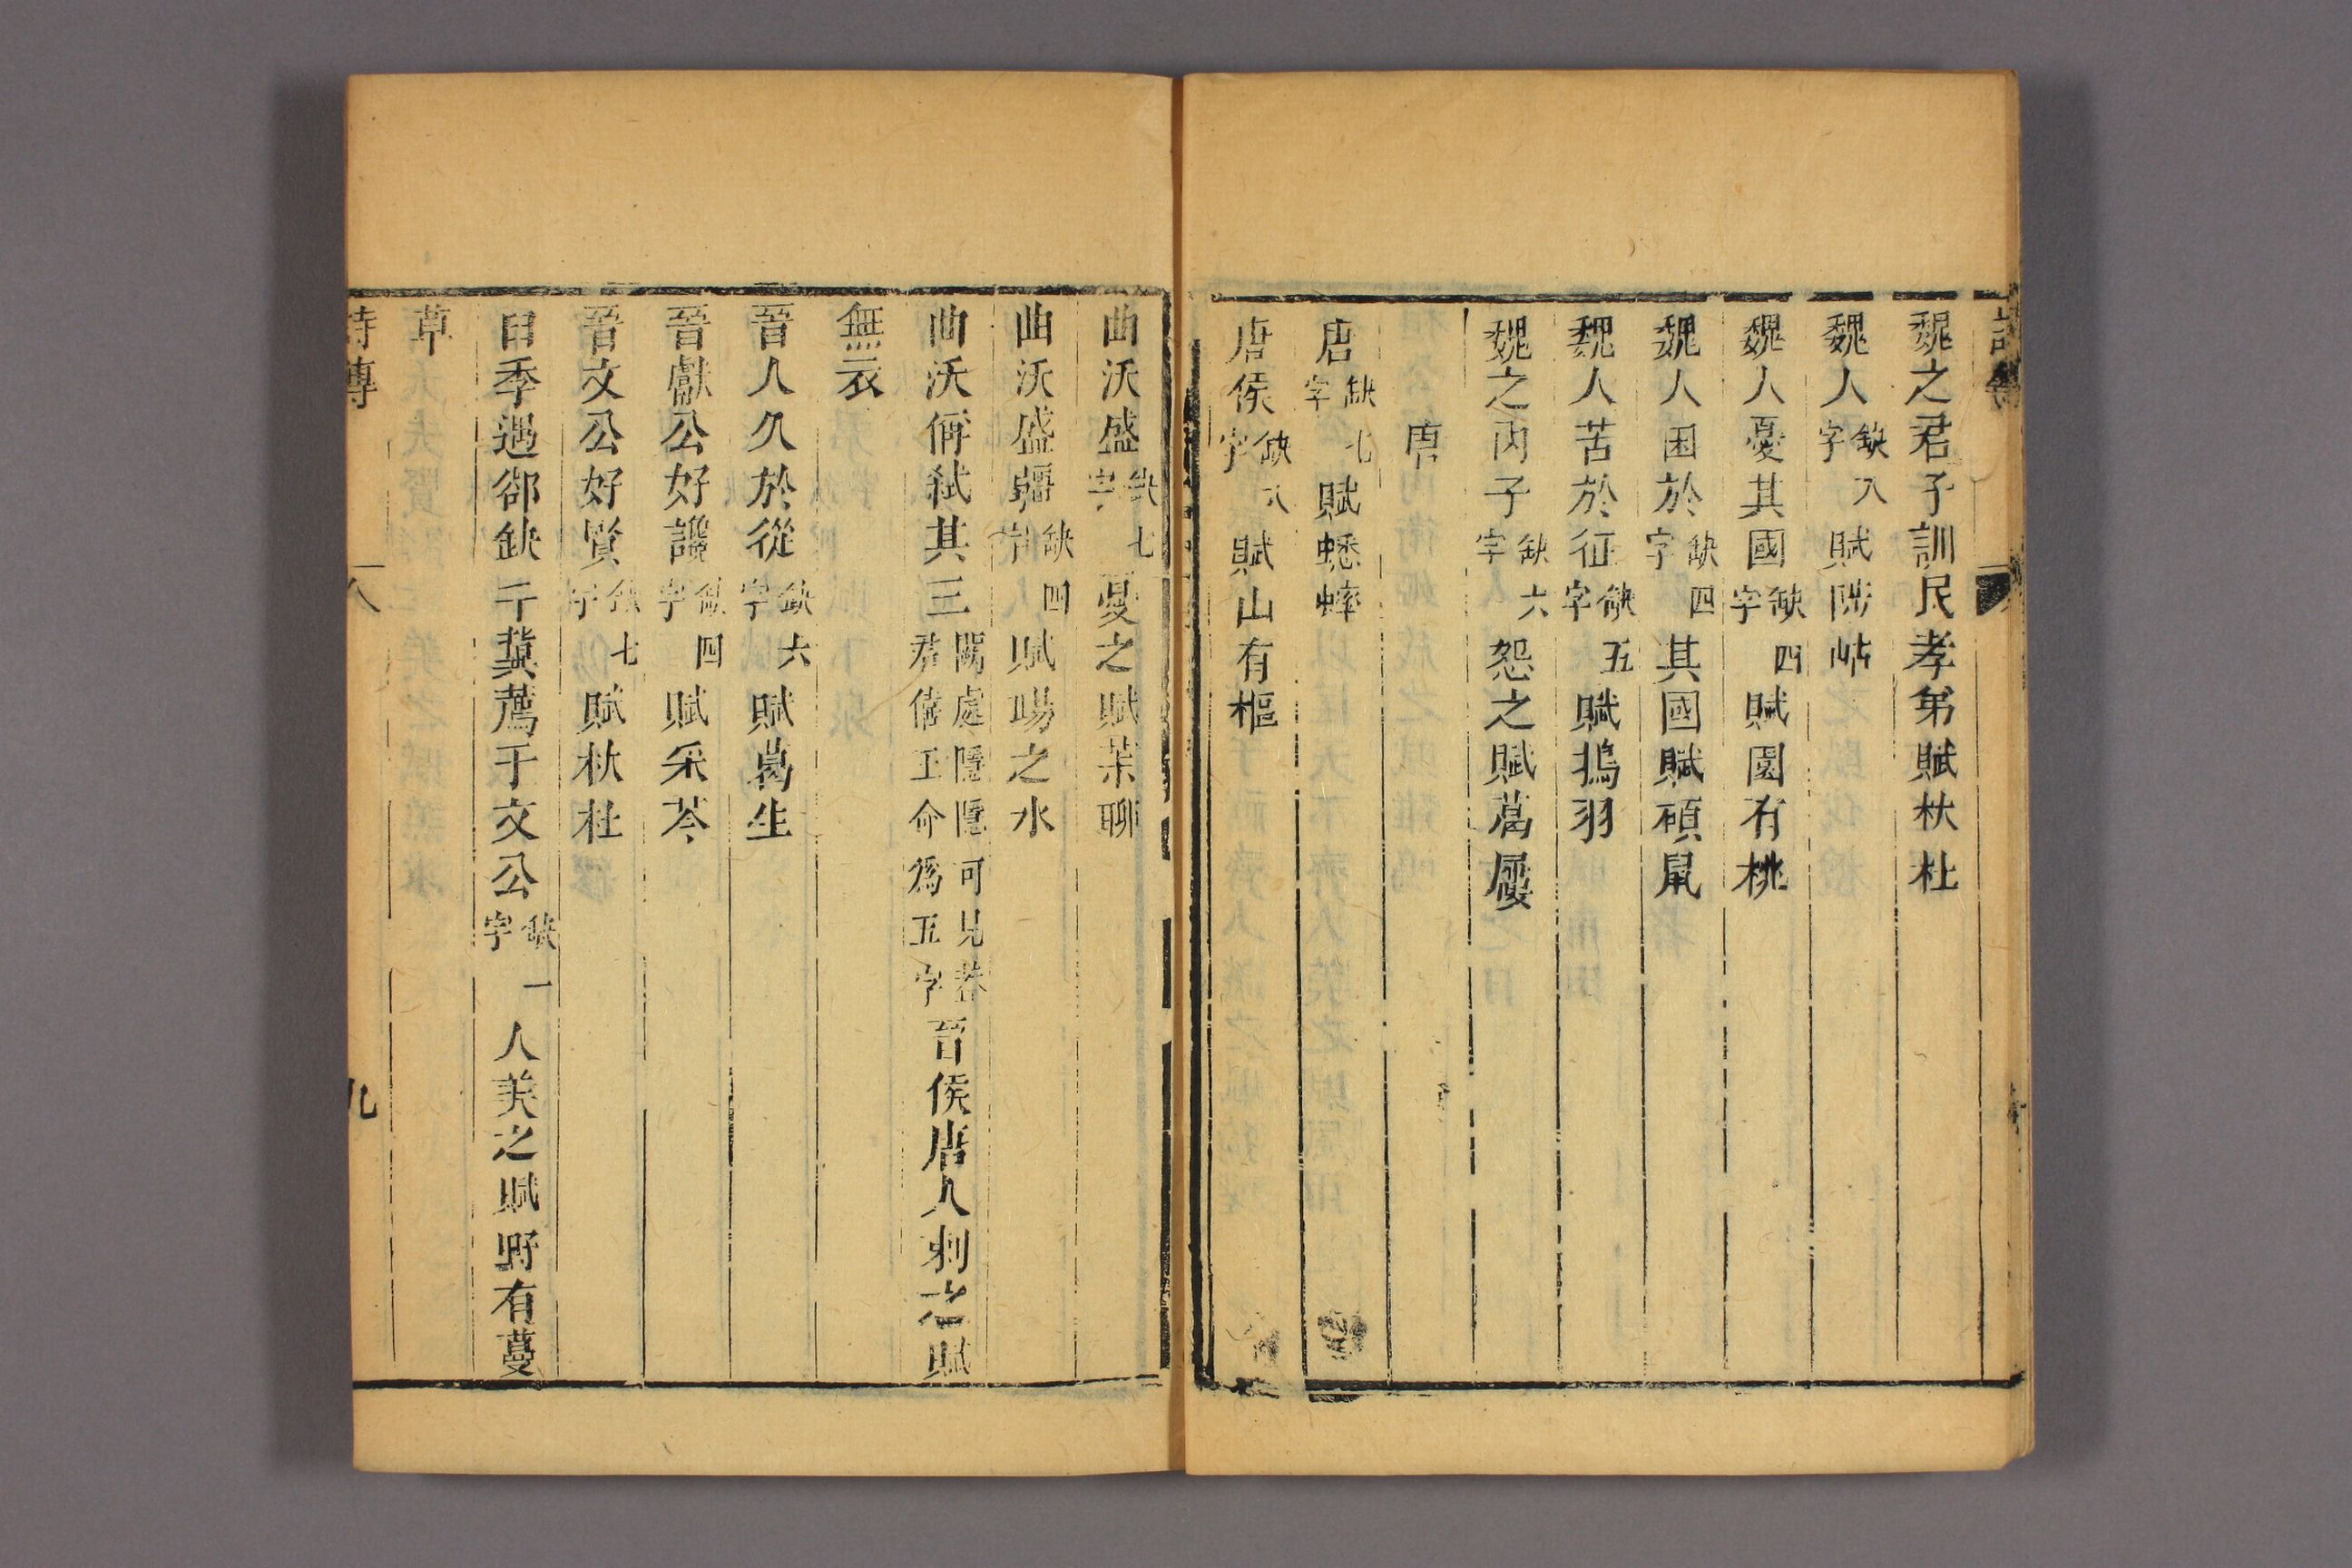 魏之君子訓民孝弟賦杕杜
魏人缺八字賦陟岵
魏人憂其國缺四字賦園有桃
魏人困於缺四字其國賦碩鼠
魏人苦於征缺五字賦鴇羽
魏之內子缺六字怨之賦葛屨
唐
唐缺七字賦蟋蟀
唐侯缺八字賦山有樞
曲沃盛缺七字憂之賦茉聊
曲沃盛彊缺四字賦昜之水
曲沃偁弒其三闕處隱隱可見葢君僖王命爲五字晉侯唐人刺之賦
無衣
晉人久於從缺六字賦葛生
晉獻公好讒缺四字賦采苓
晉文公好賢缺七字賦杕杜
臼季過郤缺于冀薦于文公缺一字人美之賦野有蔓
草
詩傳
八
九